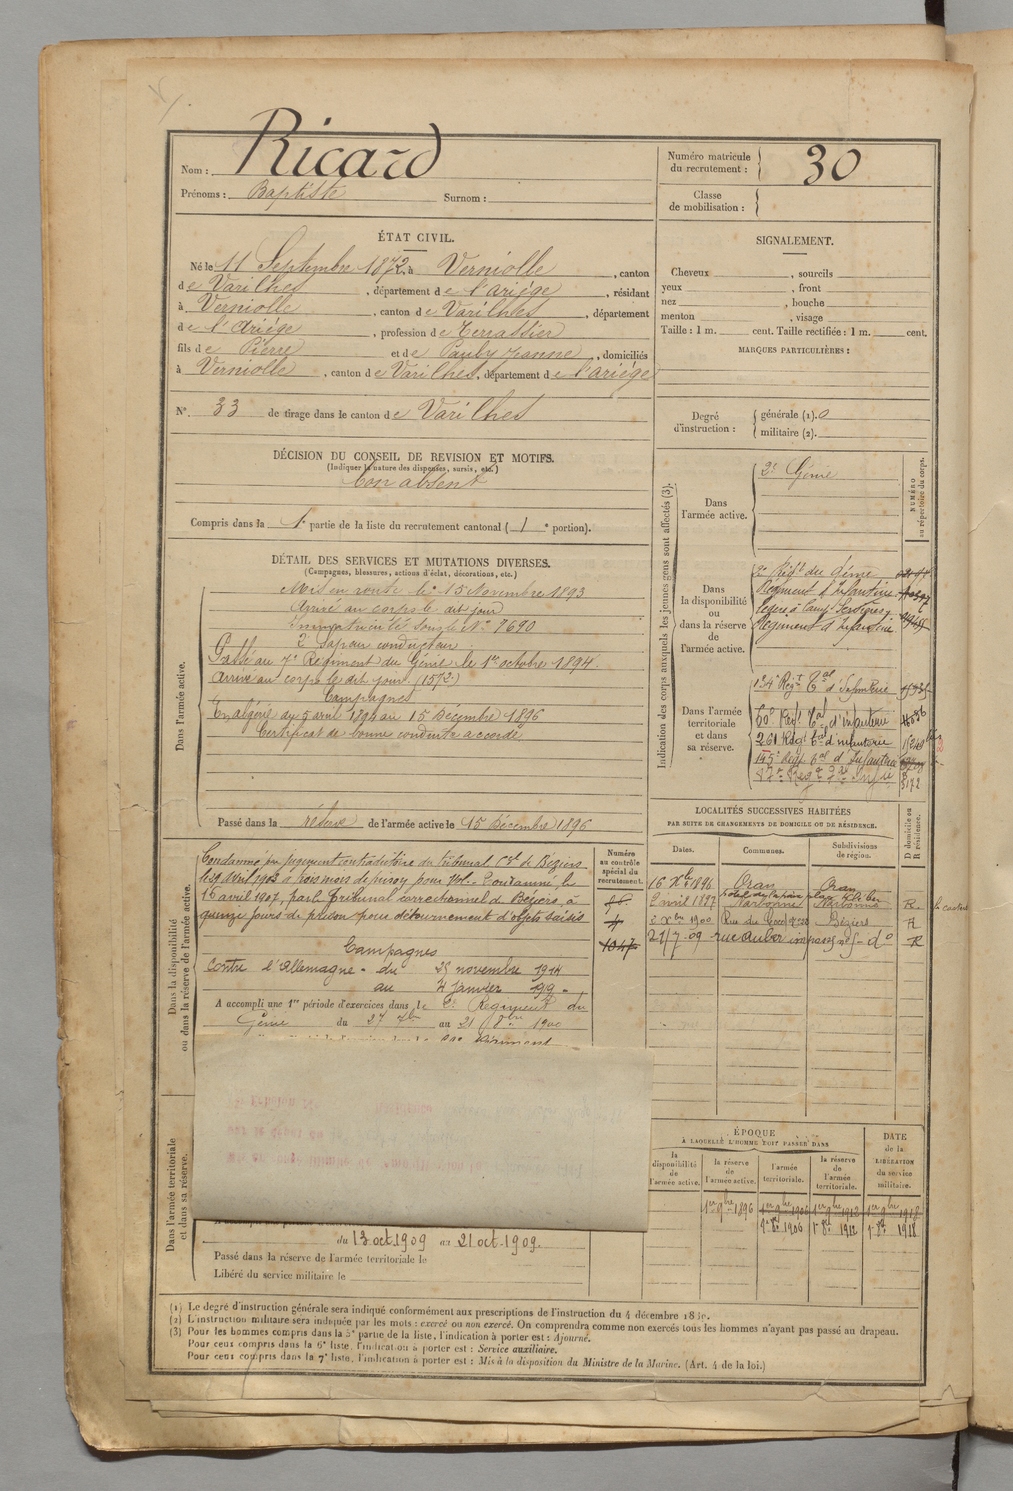 Nom : Ricard
Prénoms : Baptiste Surnom :
Numéro matricule du recrutement : 30
Classe de mobilisation :
ÉTAT CIVIL.
Né le 11 Septembre 1872, à Verniolle, canton
de Varilhes, département de l'ariège, résidant
à Verniolle, canton de Varilhes, département
de l'Ariège, profession de Terrassier
fils de Pierre et de Pauly Jeanne, domiciliés
à Verniolle, canton de Varilhes, département de l'ariège
N° 33 de tirage dans le canton de Varilhes
SIGNALEMENT.
Cheveux , sourcils
yeux , front
nez , bouche
menton , visage
Taille : 1 m. cent. Taille rectifiée : 1 m. cent.
MARQUES PARTICULIÈRES :
Degré d'instruction : générale (1). 0
militaire (2).
DÉCISION DU CONSEIL DE REVISION ET MOTIFS.
(Indiquer la nature des dispenses, sursis, etc.)
bon absent
Compris dans la 1e partie de la liste du recrutement cantonal ( 1 e portion).
DÉTAIL DES SERVICES ET MUTATIONS DIVERSES.
(Campagnes, blessures, actions d'éclat, décorations, etc.)
Dans l'armée active.
Mis en route le 15 Novembre 1893
Arrivé au corps le dit jour
Immatriculé sous le N° 7690
2e Sapeur conducteur
Passé au 7e Régiment du Génie le 1er octobre 1894
Arrivé au corps le dit jour (1572)
Campagnes
En algérie du 5 avril 1894 au 15 Décembre 1896
Certificat de bonne conduite accordé
Passé dans la réserve de l'armée active le 15 Décembre 1896
Indication des corps auxquels les jeunes gens sont affectés (3).
NUMÉRO au répertoire du corps.
Dans l'armée active.
2e Génie
Dans la disponibilité ou dans la réserve de l'armée active.
2e Régt du Génie
Régiment d'Infanterie
Régiment d'Infanterie
Dans l'armée territoriale et dans sa réserve.
124e Régt Tal d'Infanterie
261 Régt tal d'infanterie
145e Régt tal d'Infanterie
3172
LOCALITÉS SUCCESSIVES HABITÉES
PAR SUITE DE CHANGEMENTS DE DOMICILE OU DE RÉSIDENCE.
Dates. Communes. Subdivisions de région. D domicile ou R résidence.
16 Xbre 1896 Oran Oran
2 avril 1897 Narbonne Narbonne R
2 Xbre 1900 Béziers R
21/7 09 rue Auber impasse do R
Dans la disponibilité ou dans la réserve de l'armée active.
Numéro au contrôle spécial du recrutement.
Condamné par jugement contradictoire du tribunal Cel de Béziers
le 29 avril 1903 à trois mois de prison pour vol. Condamné, le
16 avril 1907, par le Tribunal correctionnel de Béziers, à
quinze jours de prison pour détournement d'objets saisis
1047
Campagnes
contre l'Allemagne - du 25 novembre 1914
au 4 Janvier 1919 -
A accompli une 1re période d'exercices dans le 2e Régiment du
Génie du 27 7bre au 21 8bre 1900
Dans l'armée territoriale et dans sa réserve.
du 13 oct. 1909 au 21 oct. 1909.
Passé dans la réserve de l'armée territoriale le
Libéré du service militaire le
ÉPOQUE
À LAQUELLE L'HOMME DOIT PASSER DANS
la disponibilité de l'armée active.
la réserve de l'armée active.
l'armée territoriale.
la réserve de l'armée territoriale.
DATE de la LIBÉRATION du service militaire.
1er 9bre 1896 1er 9bre 1906 1er 9bre 1912 1er 9bre 1918
1906 1912 1918
(1) Le degré d'instruction générale sera indiqué conformément aux prescriptions de l'instruction du 4 décembre 1889.
(2) L'instruction militaire sera indiquée par les mots : exercé ou non exercé. On comprendra comme non exercés tous les hommes n'ayant pas passé au drapeau.
(3) Pour les hommes compris dans la 5e partie de la liste, l'indication à porter est : Ajourné.
Pour ceux compris dans la 6e liste, l'indication à porter est : Service auxiliaire.
Pour ceux compris dans la 7e liste, l'indication à porter est : Mis à la disposition du Ministre de la Marine. (Art. 4 de la loi.)